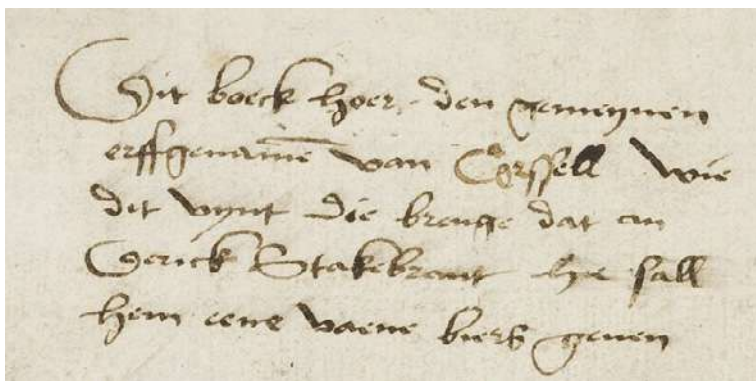 Dit boeck hoer den gemeynen
erffgename van Eerssell wie
dit vynt die brenge dat an
Gerick Stakebrant he sall
hem eene vaene biers geuen